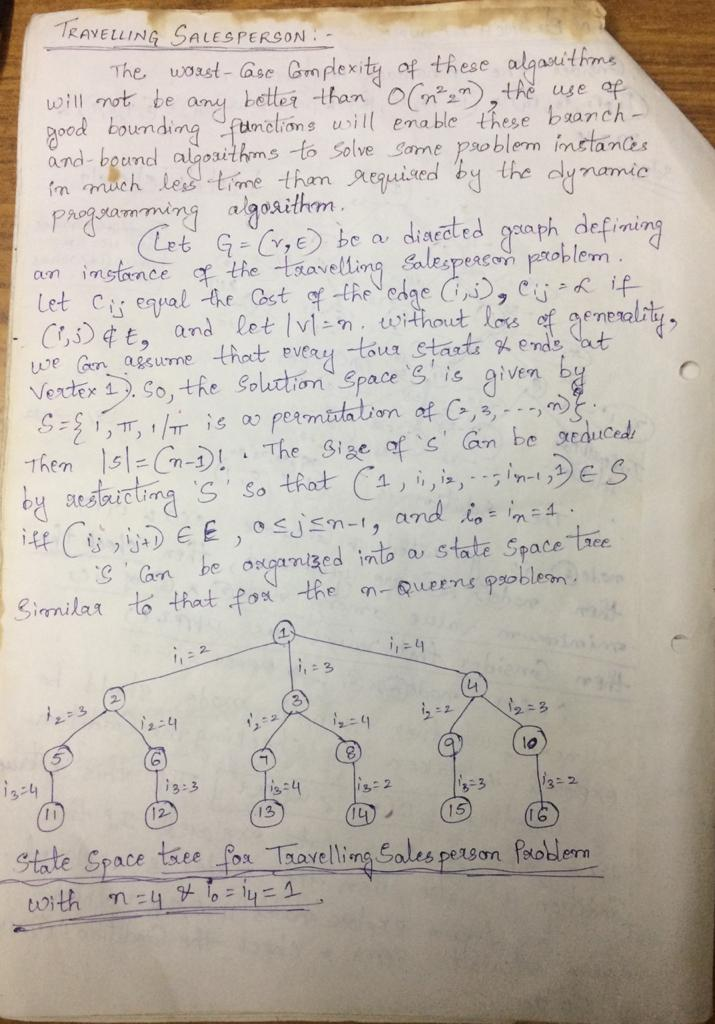 TRAVELLING SALESPERSON :-
The worst-Case Complexity of these algorithms
will not be any better than O(n²2ⁿ), the use of
good bounding functions will enable these branch-
and-bound algorithms to solve some problem instances
in much less time than required by the dynamic
programming algorithm.
(Let G = (V, E) be a directed graph defining
an instance of the travelling Salesperson problem.
Let Cij equal the Cost of the edge (i,j), Cij = ∞ if
(i,j) ∉ E, and let |V| = n. without loss of generality,
we Can assume that every tour starts & ends at
Vertex 1). So, the Solution Space 'S' is given by
S = { 1, π, 1 / π is a permutation of (2, 3, ---, n)}.
Then |S| = (n-1)! . The Size of 'S' Can be reduced
by restricting 'S' so that (1, i1, i2, --, in-1, 1) ∈ S
iff (ij, ij+1) ∈ E, 0 ≤ j ≤ n-1, and i0 = in = 1.
'S' Can be organized into a State Space tree
Similar to that for the n-Queens problem.
1
i1 = 2 i1 = 3 i1 = 4
2 3 4
i2 = 3 i2 = 4 i2 = 2 i2 = 4 i2 = 2 i2 = 3
5 6 7 8 9 10
i3 = 4 i3 = 3 i3 = 4 i3 = 2 i3 = 3 i3 = 2
11 12 13 14 15 16
State Space tree for Travelling Sales person Problem
with n = 4 & i0 = i4 = 1